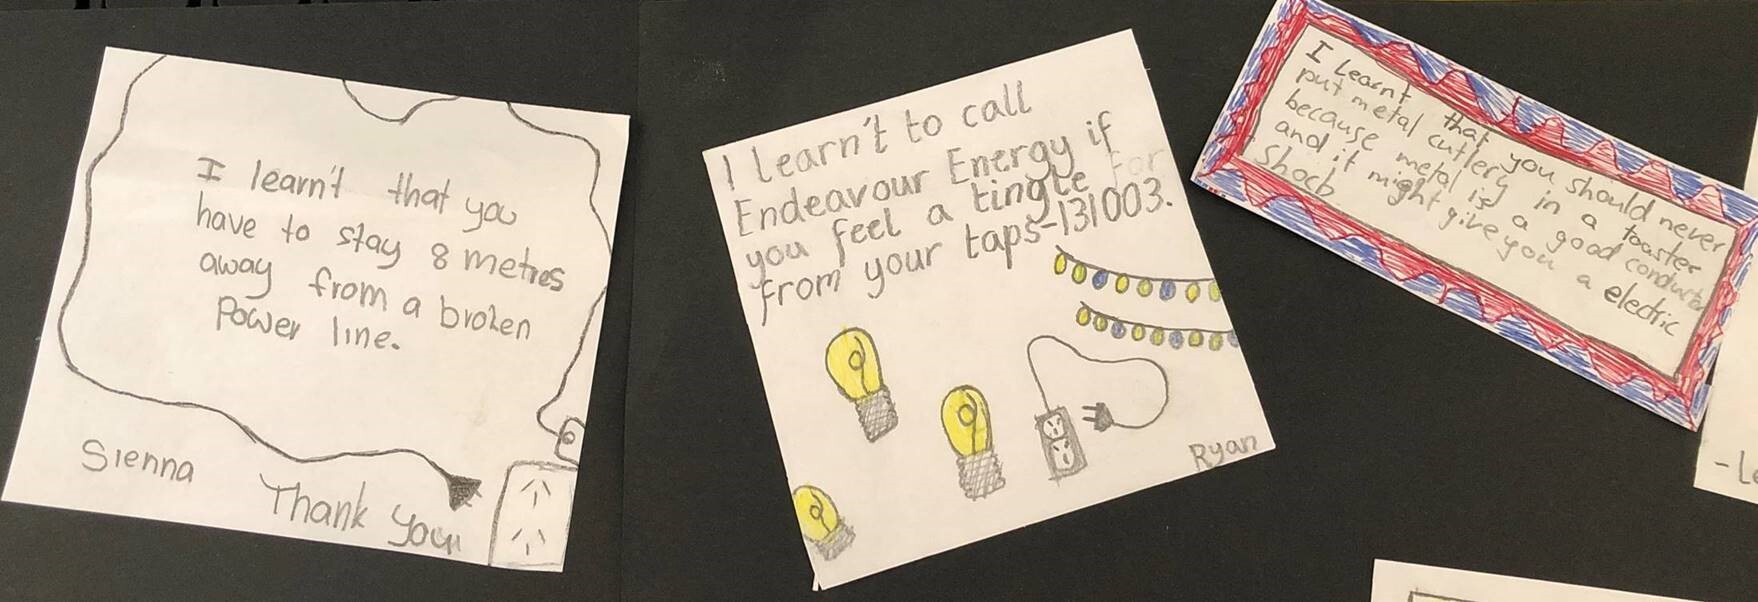 I learn't that you
have to stay 8 metres
away from a broken
Power line.
Sienna
Thank you
I learn't to call
Endeavour Energy if
you feel a tingle for
from your taps-131003.
Ryan
I Learnt that you should never
put metal cutlery in a toaster
because metal is a good conductor
and it might give you a electric
shock